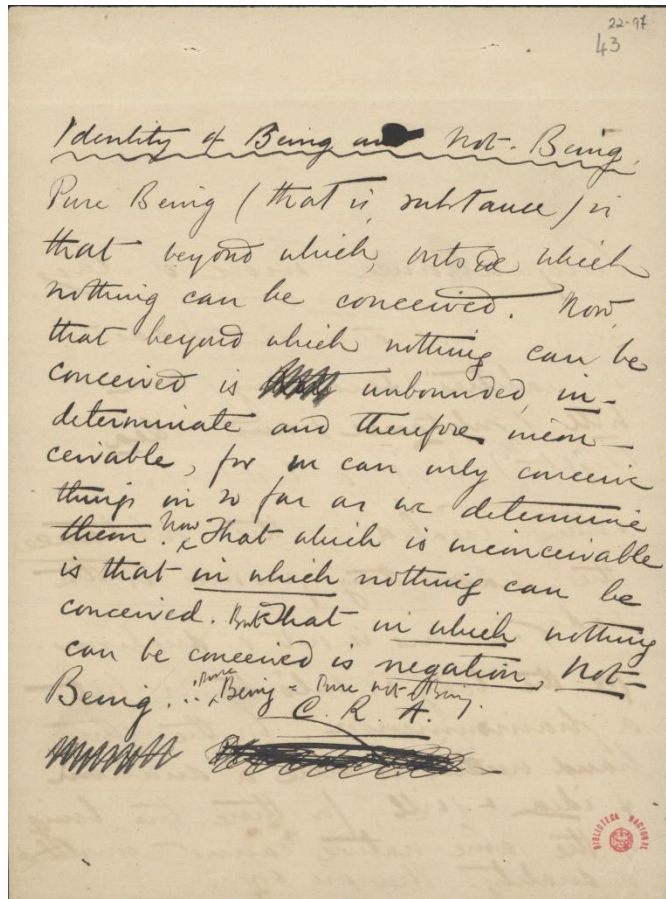 22-97
43
Identity of Being and Not-Being.
Pure Being (that is, substance) is
that beyond which, outside which
nothing can be conceived. Now,
that beyond which nothing can be
conceived is unbounded, in-
determinate and therefore incon-
ceivable, for we can only conceive
things in so far as we determine
them. Now That which is inconceivable
is that in which nothing can be
conceived. But That in which nothing
can be conceived is negation, Not-
Being. ∴ Pure Being = Pure not-Being.
C. R. A.
BIBLIOTECA NACIONAL